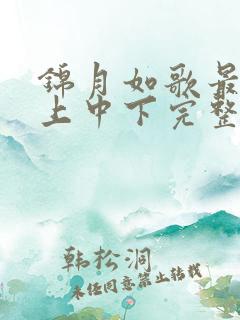 锦月如歌最
上中下完整
韩松洞
未经同意禁止转载